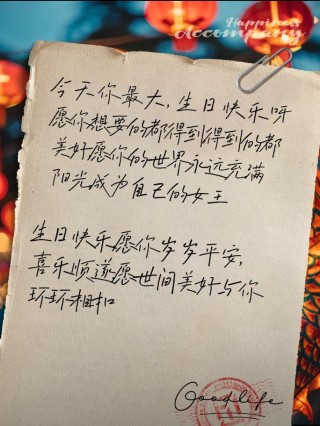 Happiness
Accompany
今天你最大,生日快乐呀
愿你想要的都得到得到的都
美好愿你的世界永远充满
阳光成为自己的女王
生日快乐愿你岁岁平安,
喜乐顺遂愿世间美好与你
环环相扣
Goodlife